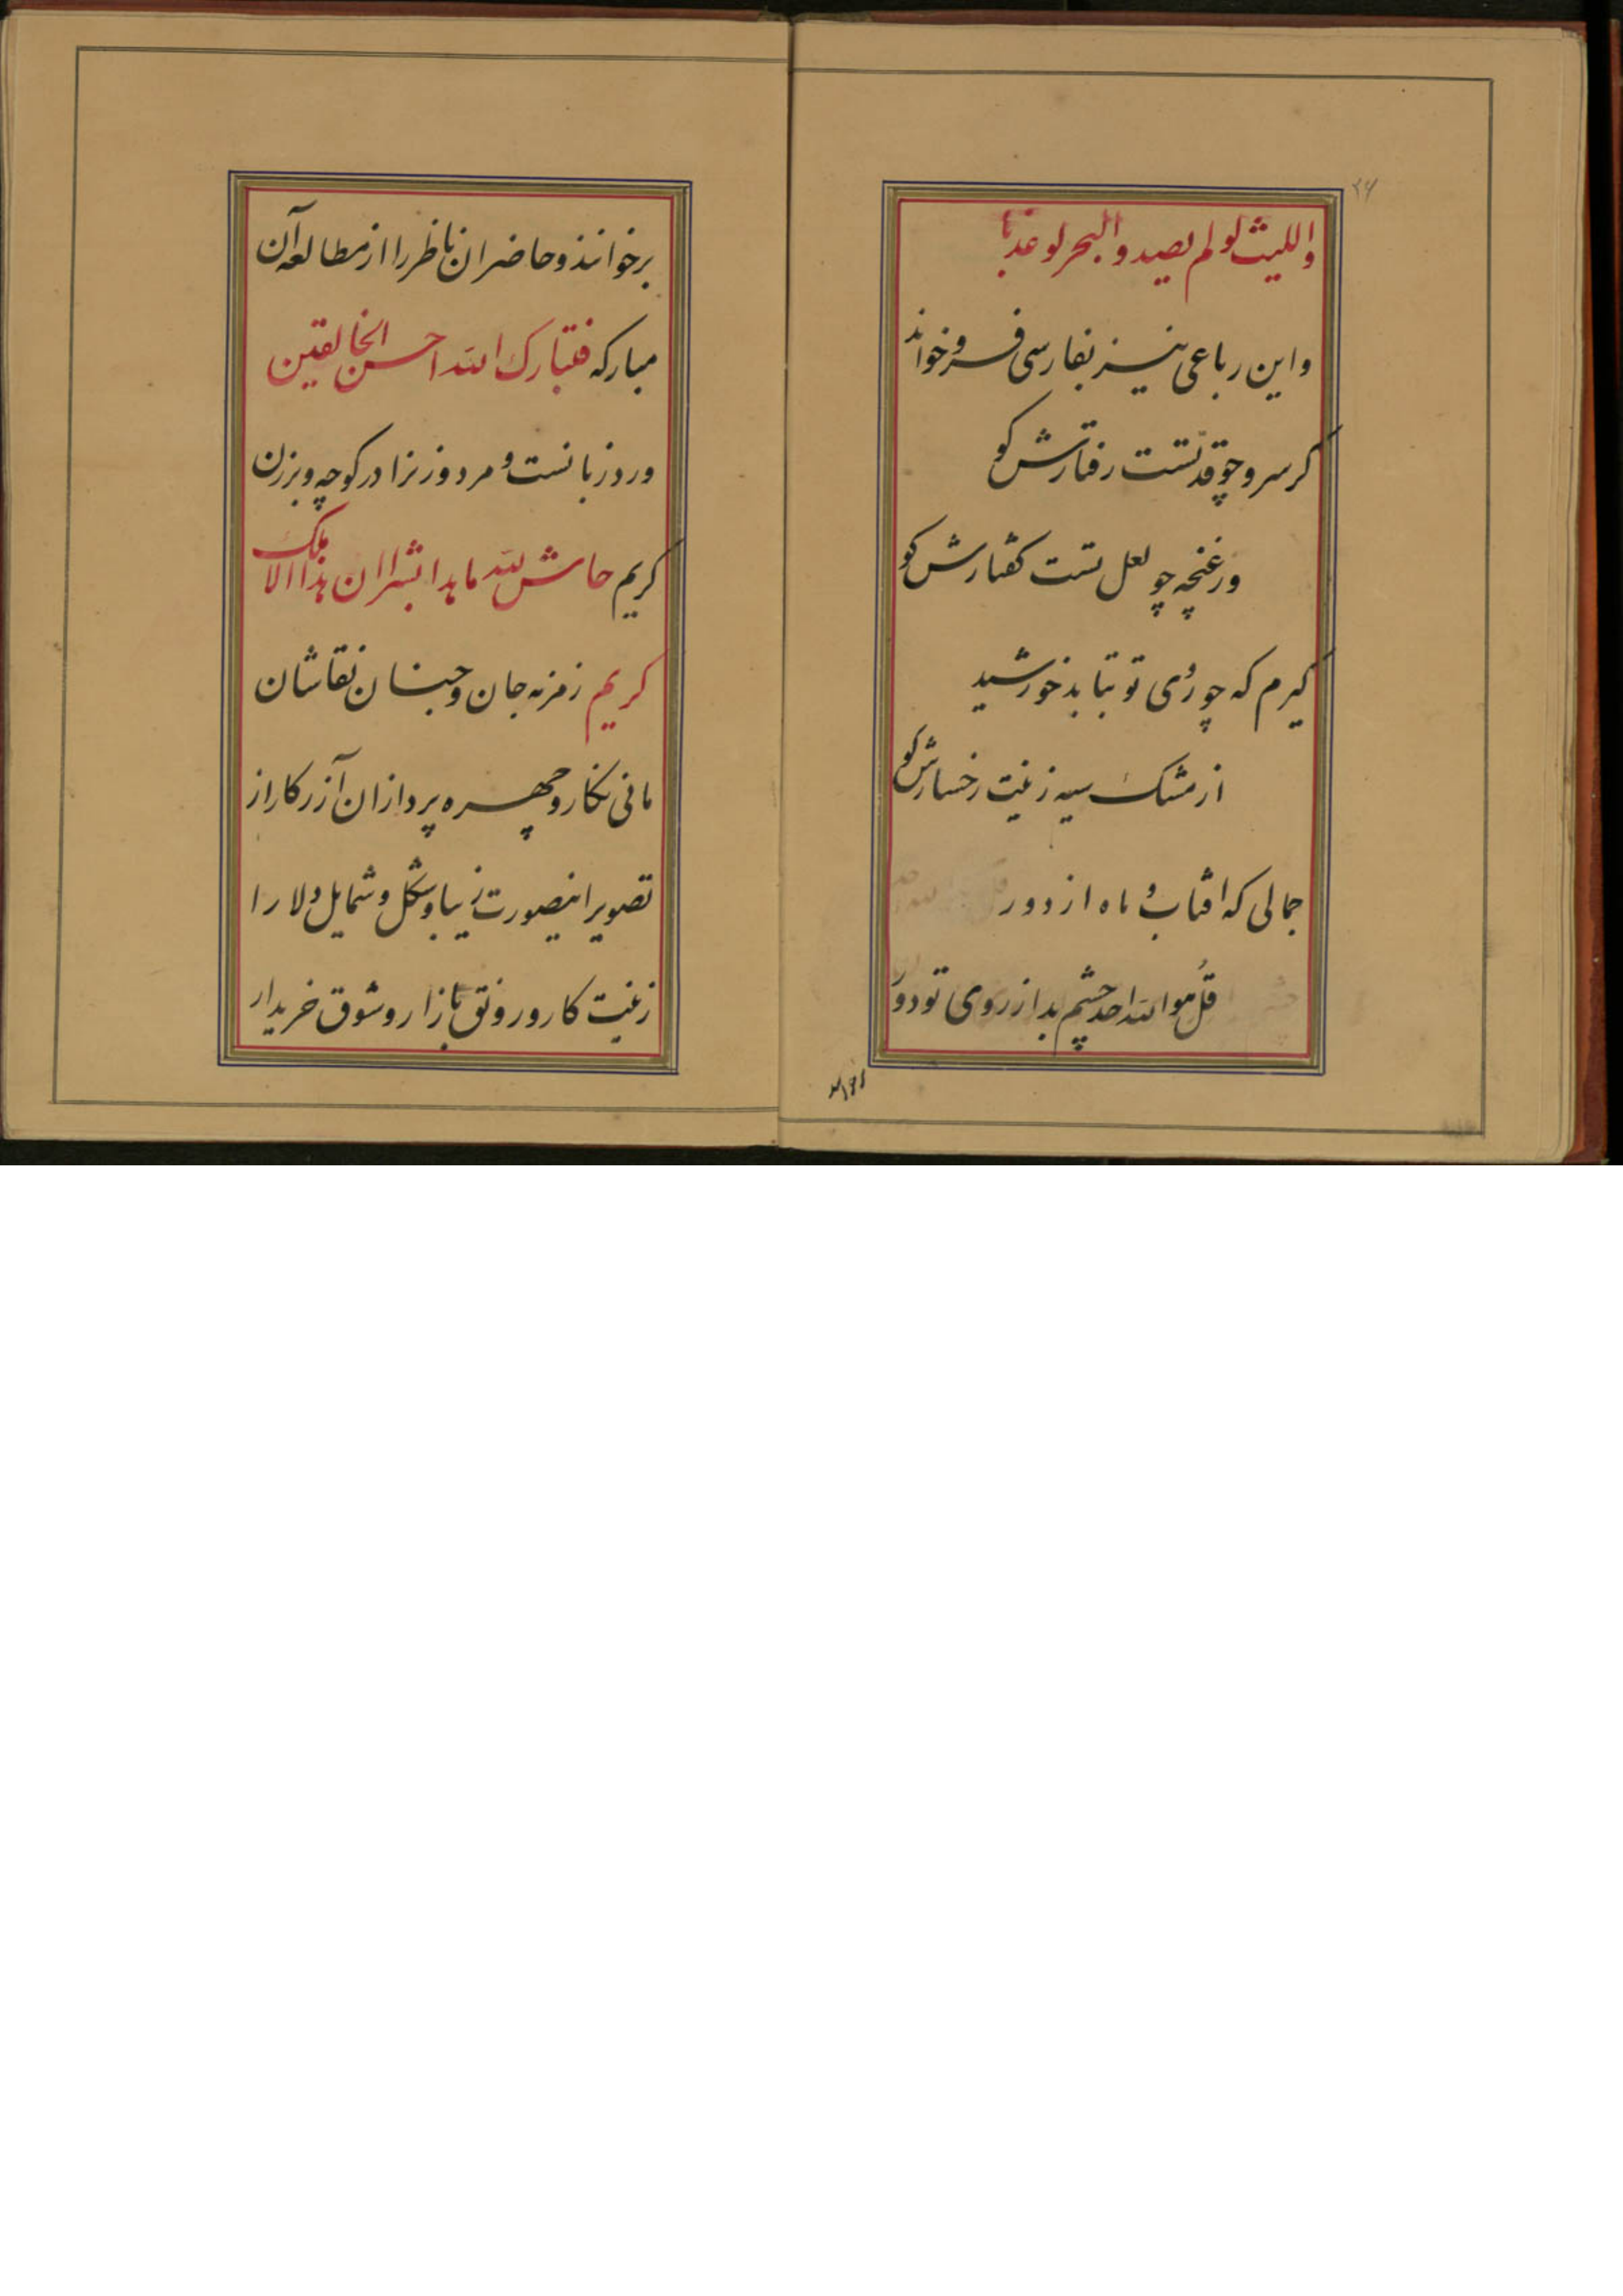 واللیث لو لم یصید و البحر لو عذبا
و این رباعی نیز بفارسی فرو خواند
کر سرو چو قد تست رفتارش کو
ور غنچه چو لعل تست کفتارش کو
کیرم که چو روی تو بتابد خورشید
از مشک سیه زینت رخسارش کو
جمالی که افتاب و ماه از دور
قل هو الله احد چشم بد از روی تو دور
برخوانند و حاضران ناظر را از مطالعه آن
مبارکه فتبارک الله احسن الخالقین
ورد زبانست و مرد و زنرا در کوچه و برزن
کریم حاش لله ما هذا بشرا ان هذا الا ملک
کریم زمزمه جان و جنان نقاشان
مانی نکار و چهره پردازان آزر کار از
تصویر اینصورت زیبا و شکل و شمایل ولا را
زینت کار و رونق بازار و شوق خریدار